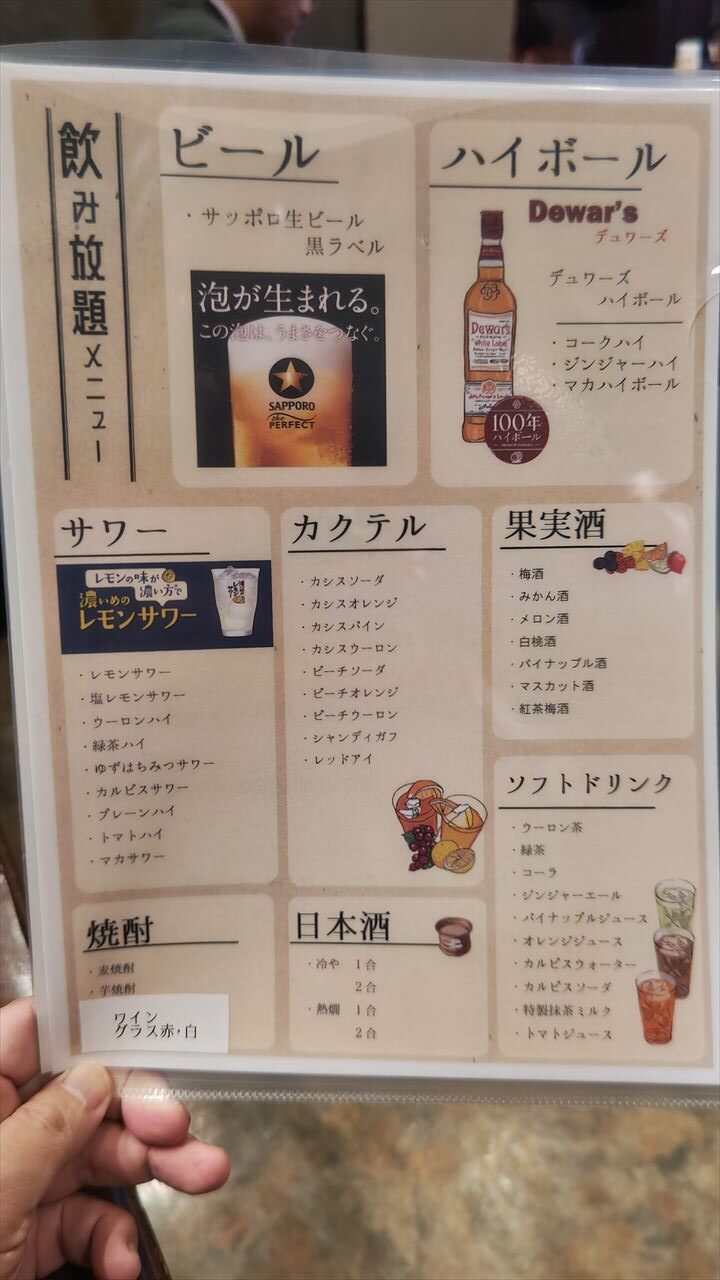 飲み放題メニュー
ビール
・サッポロ生ビール
黒ラベル
泡が生まれる。
この泡は、うまさをつなぐ。
SAPPORO
the
PERFECT
ハイボール
Dewar's
デュワーズ
デュワーズ
ハイボール
・コークハイ
・ジンジャーハイ
・マカハイボール
Dewar's
White Label
100年
ハイボール
サワー
レモンの味が
濃い方で
濃いめの
レモンサワー
・レモンサワー
・塩レモンサワー
・ウーロンハイ
・緑茶ハイ
・ゆずはちみつサワー
・カルピスサワー
・プレーンハイ
・トマトハイ
・マカサワー
カクテル
・カシスソーダ
・カシスオレンジ
・カシスパイン
・カシスウーロン
・ピーチソーダ
・ピーチオレンジ
・ピーチウーロン
・シャンディガフ
・レッドアイ
果実酒
・梅酒
・みかん酒
・メロン酒
・白桃酒
・パイナップル酒
・マスカット酒
・紅茶梅酒
ソフトドリンク
・ウーロン茶
・緑茶
・コーラ
・ジンジャーエール
・パイナップルジュース
・オレンジジュース
・カルピスウォーター
・カルピスソーダ
・特製抹茶ミルク
・トマトジュース
焼酎
・麦焼酎
・芋焼酎
ワイン
グラス赤・白
日本酒
・冷や 1合
2合
・熱燗 1合
2合